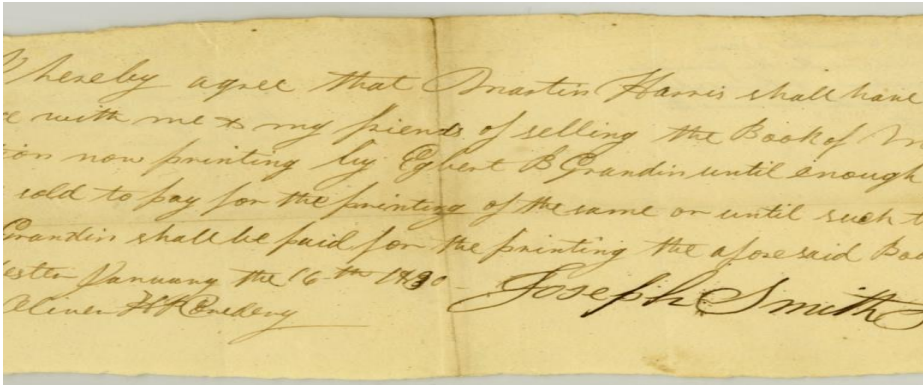 I hereby agree that Martin Harris shall have
with me & my friends of selling the Book of M
ion now printing by Egbert B Grandin until enough
sold to pay for the printing of the same or until such t
Grandin shall be paid for the printing the aforesaid Boo
ester January the 16th 1830 —
Joseph Smith
Oliver H P Cowdery